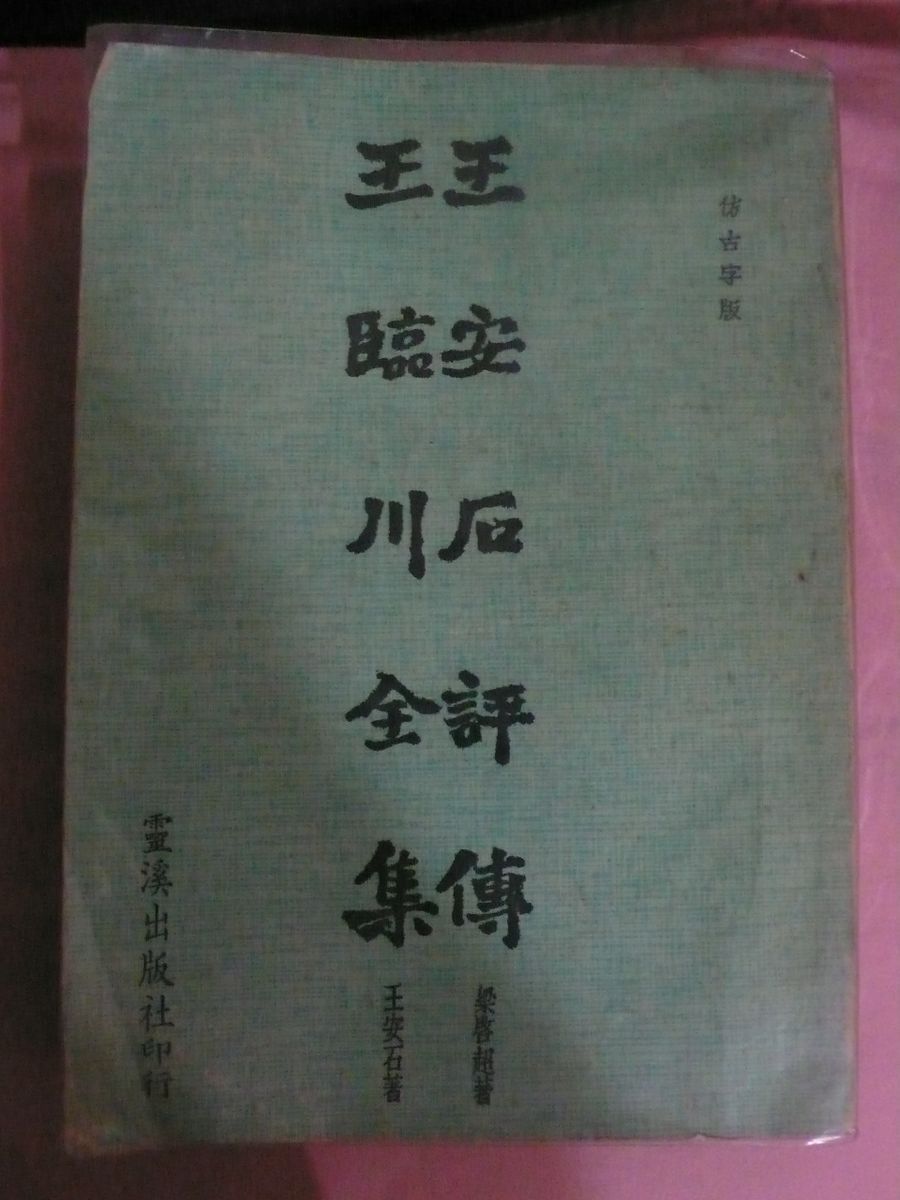 仿古字版
王安石評傳
梁啓超著
王臨川全集
王安石著
靈溪出版社印行